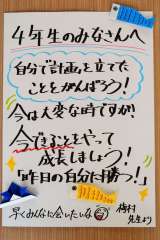 4年生のみなさんへ
自分で計画を立てた
ことをがんばろう!
今は大変な時ですが、
今できることをやって
成長しましょう!
「昨日の自分に勝つ!」
早くみんなに会いたいな
梅村
先生より